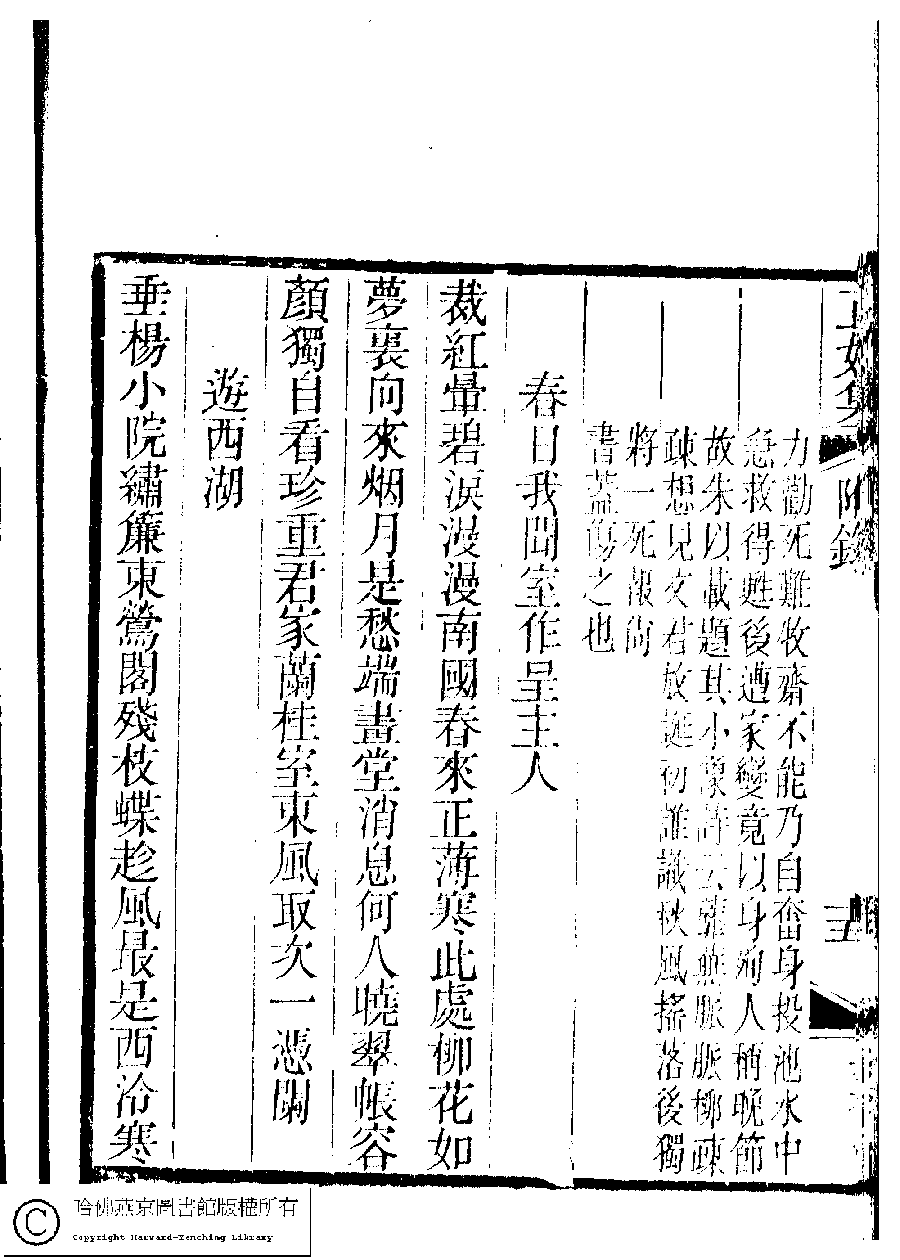 附錄
力勸死難牧齋不能乃自奮身投池水中
急救得甦後遭家變竟以身殉人稱晚節
故朱以載題其小像詩云蘼蕪脈脈柳疎
疎想見文君放誕初誰識秋風搖落後獨
將一死報尚
書蓋傷之也
春日我聞室作呈主人
裁紅暈碧淚漫漫南國春來正薄寒此處柳花如
夢裏向來烟月是愁端畫堂消息何人曉翠帳容
顏獨自看珍重君家蘭桂室東風取次一憑闌
遊西湖
垂楊小院繡簾東鶯閣殘枝蝶趁風最是西泠寒
哈佛燕京圖書館版權所有
Copyright Harvard-Yenching Library